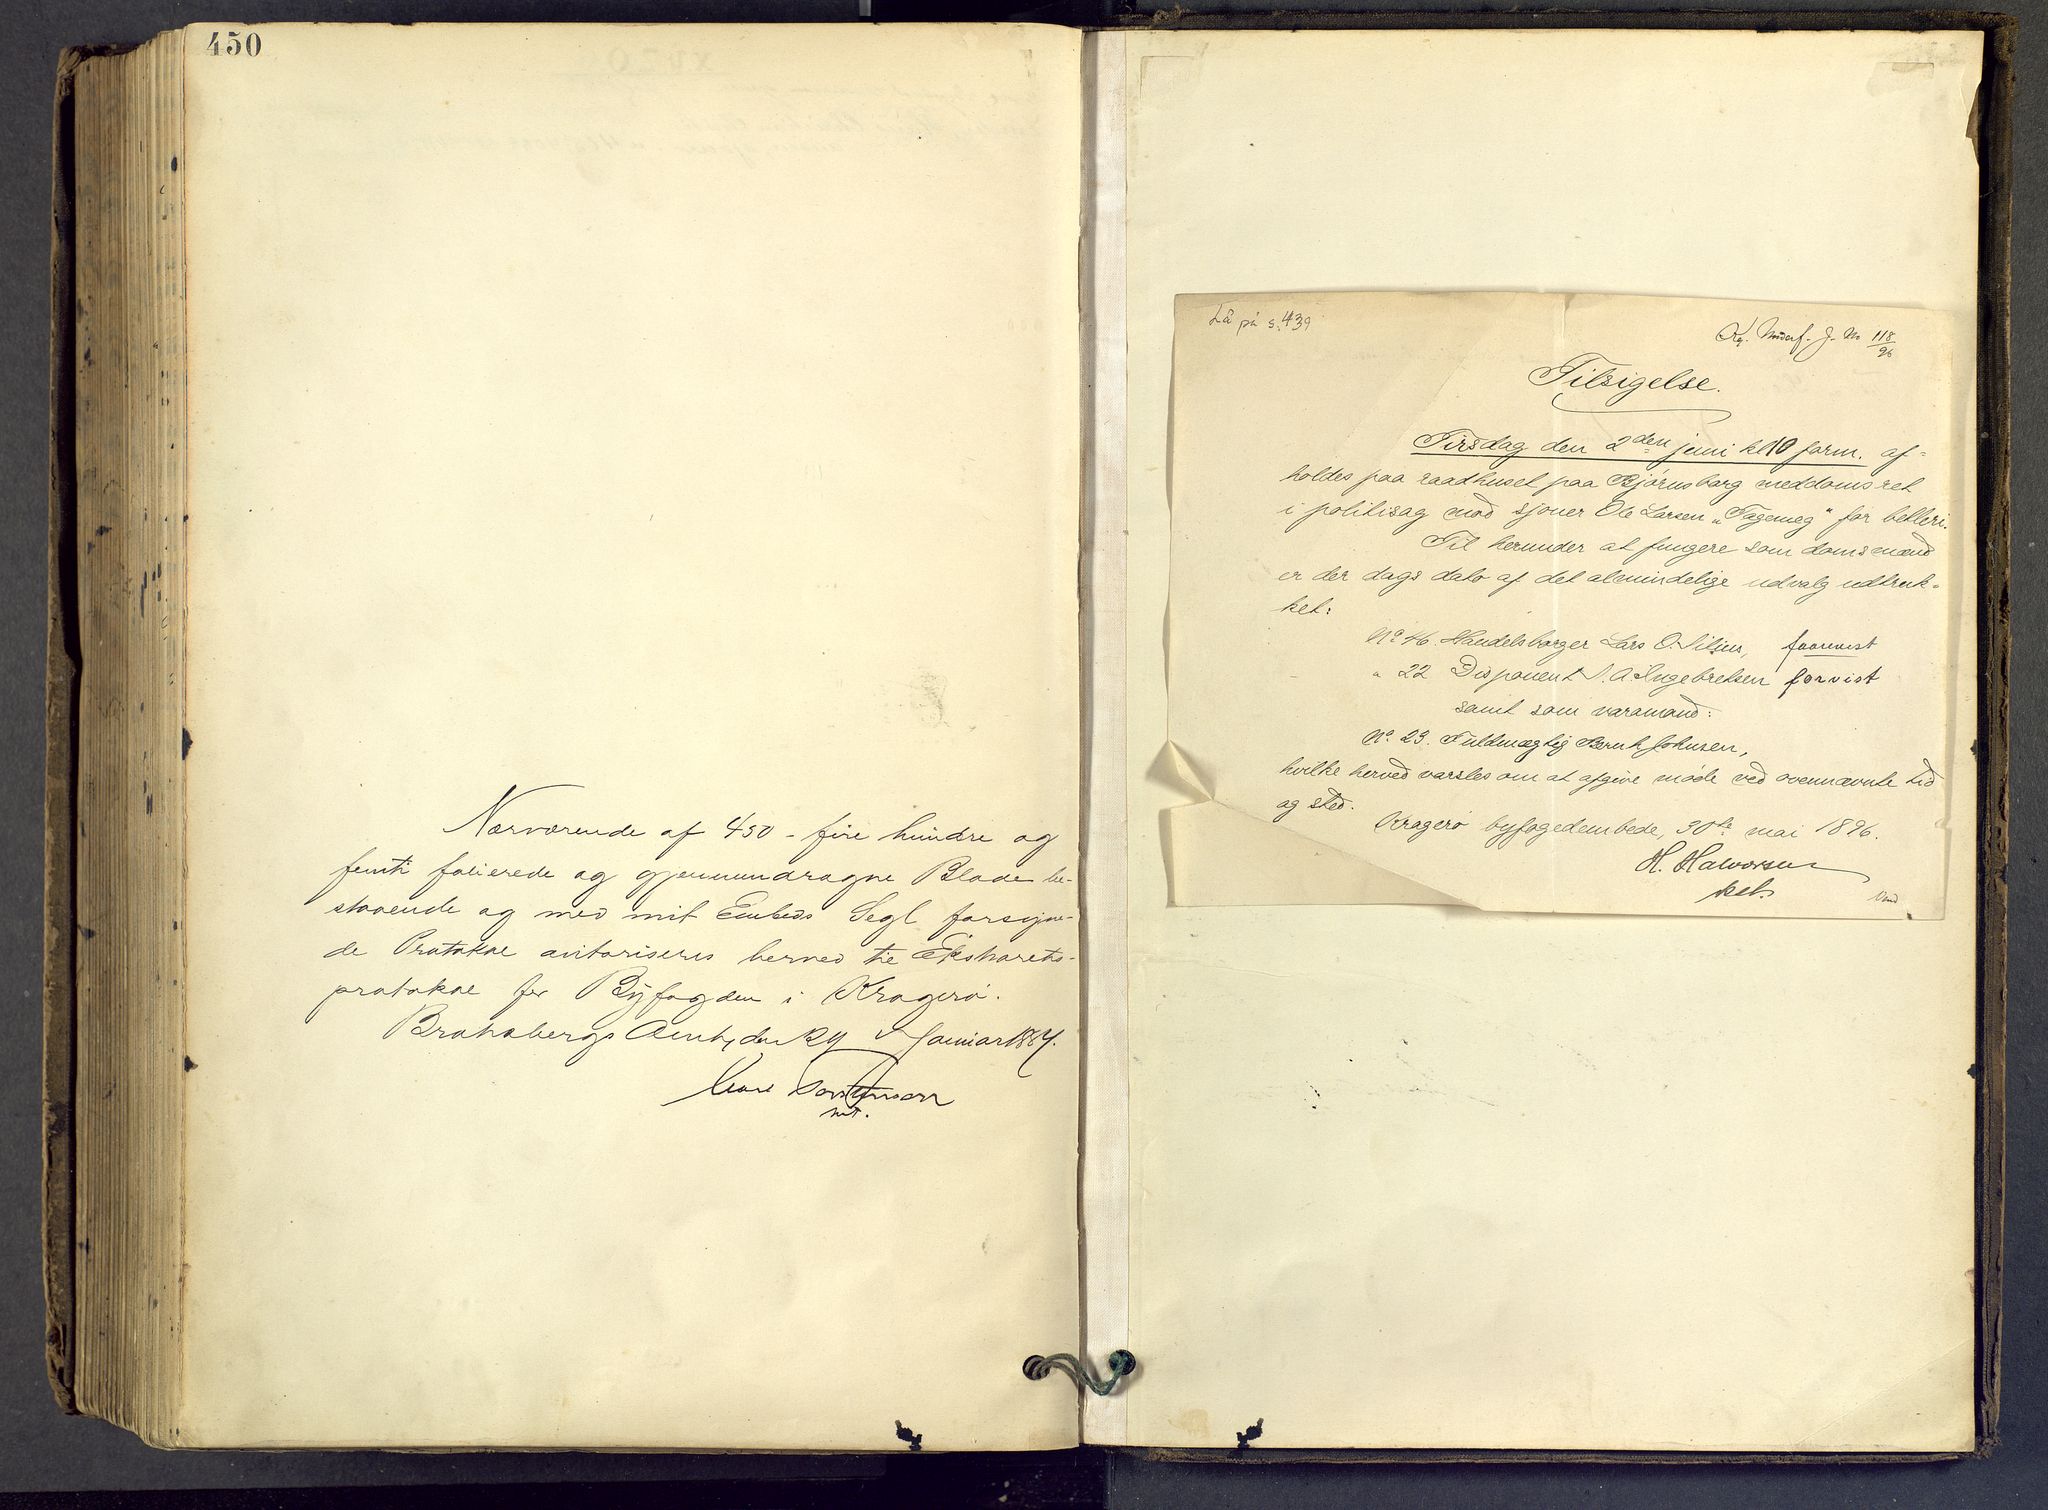 450
Nærværende af 450 - fire hundre og
femti folierede og gjennemdragne Blade be-
staaende og med mit Embeds Segl forsyne-
de Protokol avtoriseres herved til Ekstrarets-
protokol for Byfogden i Kragerø.
Bratsberg Amt, den 24 Januar 1887.
cst.
Lå på s. 439
Kg. Underf. J. No 118/96
Tilsigelse.
Tirsdag den 2den juni kl 10 form. af-
holdes paa raadhuset paa Bjørnsborg meddomsret
i politisag mod sjouer Ole Larsen „Tagemeg“ for betleri.
Til herunder at fungere som domsmænd
er der dags dato af det almindelige udvalg udtruk-
ket:
No 46. Handelsborger Lars O. Nilsen, foorevist
" 22 Disponent N. A. Ingebretsen forvist
samt som varamand:
No. 23. Fuldmægtig Bernh. Johnsen,
hvilke herved varsles om at afgive møde ved ovennævnte tid
og sted.
Kragerø byfogedembede, 30te mai 1896.
H. Halvorsen
cst.
Vend